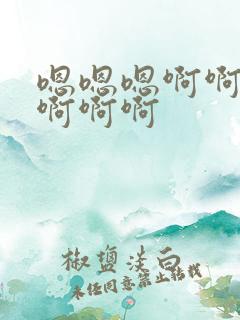 嗯嗯嗯啊啊
啊啊啊
椒盐淡白
未经同意禁止转载